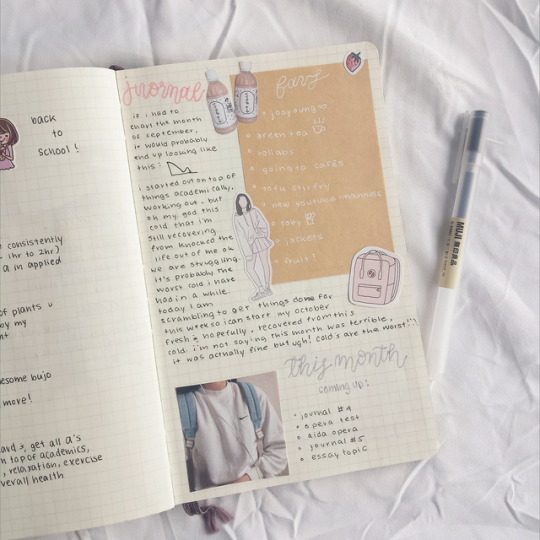 back
to
school!
consistently
- 1hr to 2hr)
a in applied
of plants
by my
nt
esome bujo
more!
ard, get all a's
h top of academics,
, relaxation, exercise
verall health
journal
if i had to
chart the month
of september,
it would probably
end up looking like
this:
i started out on top of
things academically,
working out. but
oh my god this
cold that i'm
still recovering
from knocked the
life out of me ok
we are struggling.
it's probably the
worst cold i have
had in a while.
today i am
scrambling to get things done for
this week so i can start my october
fresh & hopefully, recovered from this
cold. i'm not saying this month was terrible,
it was actually fine but ugh! colds are the worst!!
favs
jooyoung
green tea
collabs
going to cafes
tofu stirfry
new youtube channels
toby
jackets
fruit!
this month
coming up!
journal #4
opera test
aida opera
journal #5
essay topic
MUJI 無印良品